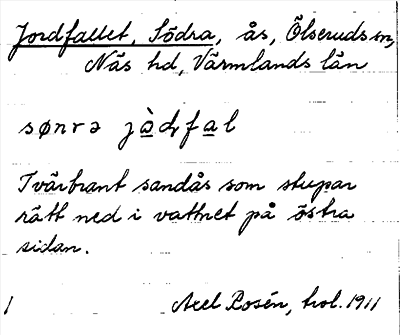 Jordfallet, Södra, ås, Ölseruds sn,
Näs hd, Värmlands län
sønrə jàḍfal
Tvärbrant sandås som stupar
rätt ned i vattnet på östra
sidan.
1 Axel Rosén, hol. 1911